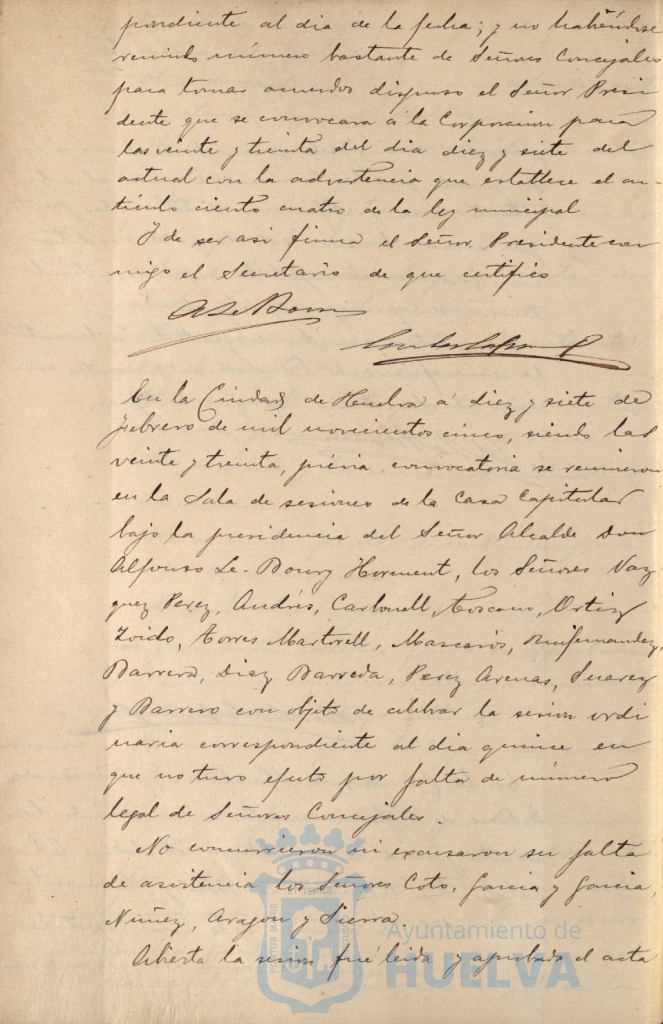 pondiente al dia de la fecha; y no habiendose
reunido número bastante de Señores Concejales
para tomar acuerdos dispuso el Señor Presi
dente que se convocara á la Corporacion para
las veinte y treinta del dia diez y siete del
actual con la advertencia que establece el ar-
tículo ciento cuatro de la ley municipal
Y de ser asi firma el Señor Presidente con
migo el Secretario de que certifico
En la Ciudad de Huelva á diez y siete de
febrero de mil novecientos cinco, siendo las
veinte y treinta, prévia convocatoria se reunieron
en la Sala de sesiones de la Casa Capitular
bajo la presidencia del Señor Alcalde Don
Alfonso Le-Bourg Horment, los Señores Vaz
quez Perez, Andrés, Carbonell, Toscano, Ortiz
Zoido, Torres Martorell, Mascarós, Ruifernandez,
Barrera, Diaz Barreda, Perez Arenas, Suarez
y Barrero con objeto de celebrar la sesion ordi
naria correspondiente al dia quince en
que no tuvo efecto por falta de número
legal de Señores Concejales.
No concurrieron ni excusaron su falta
de asistencia los Señores Coto, Garcia y Garcia,
Nuñez, Aragon y Sierra
Abierta la sesion fué leida y aprobada el acta
Ayuntamiento de
HUELVA